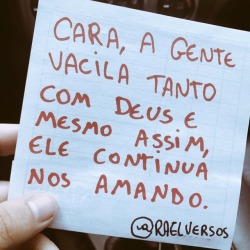 CARA, A GENTE
VACILA TANTO
COM DEUS E
MESMO ASSIM,
ELE CONTINUA
NOS AMANDO.
@RAELVERSOS